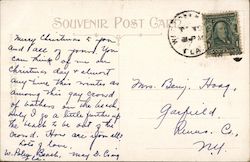 SOUVENIR POST CARD
Merry Christmas to you
and all of yours. You
can think of me on
Christmas day & almost
any time this winter as
among this gay crowd
of bathers on the beach,
only I go a little further up
the beach to be out of the
crowd. How are you all
Lots of love.
W. Palm Beach, May D. Craig
FLA
Mrs. Benj. Hoag,
Garfield,
Renss. Co.,
N.Y.